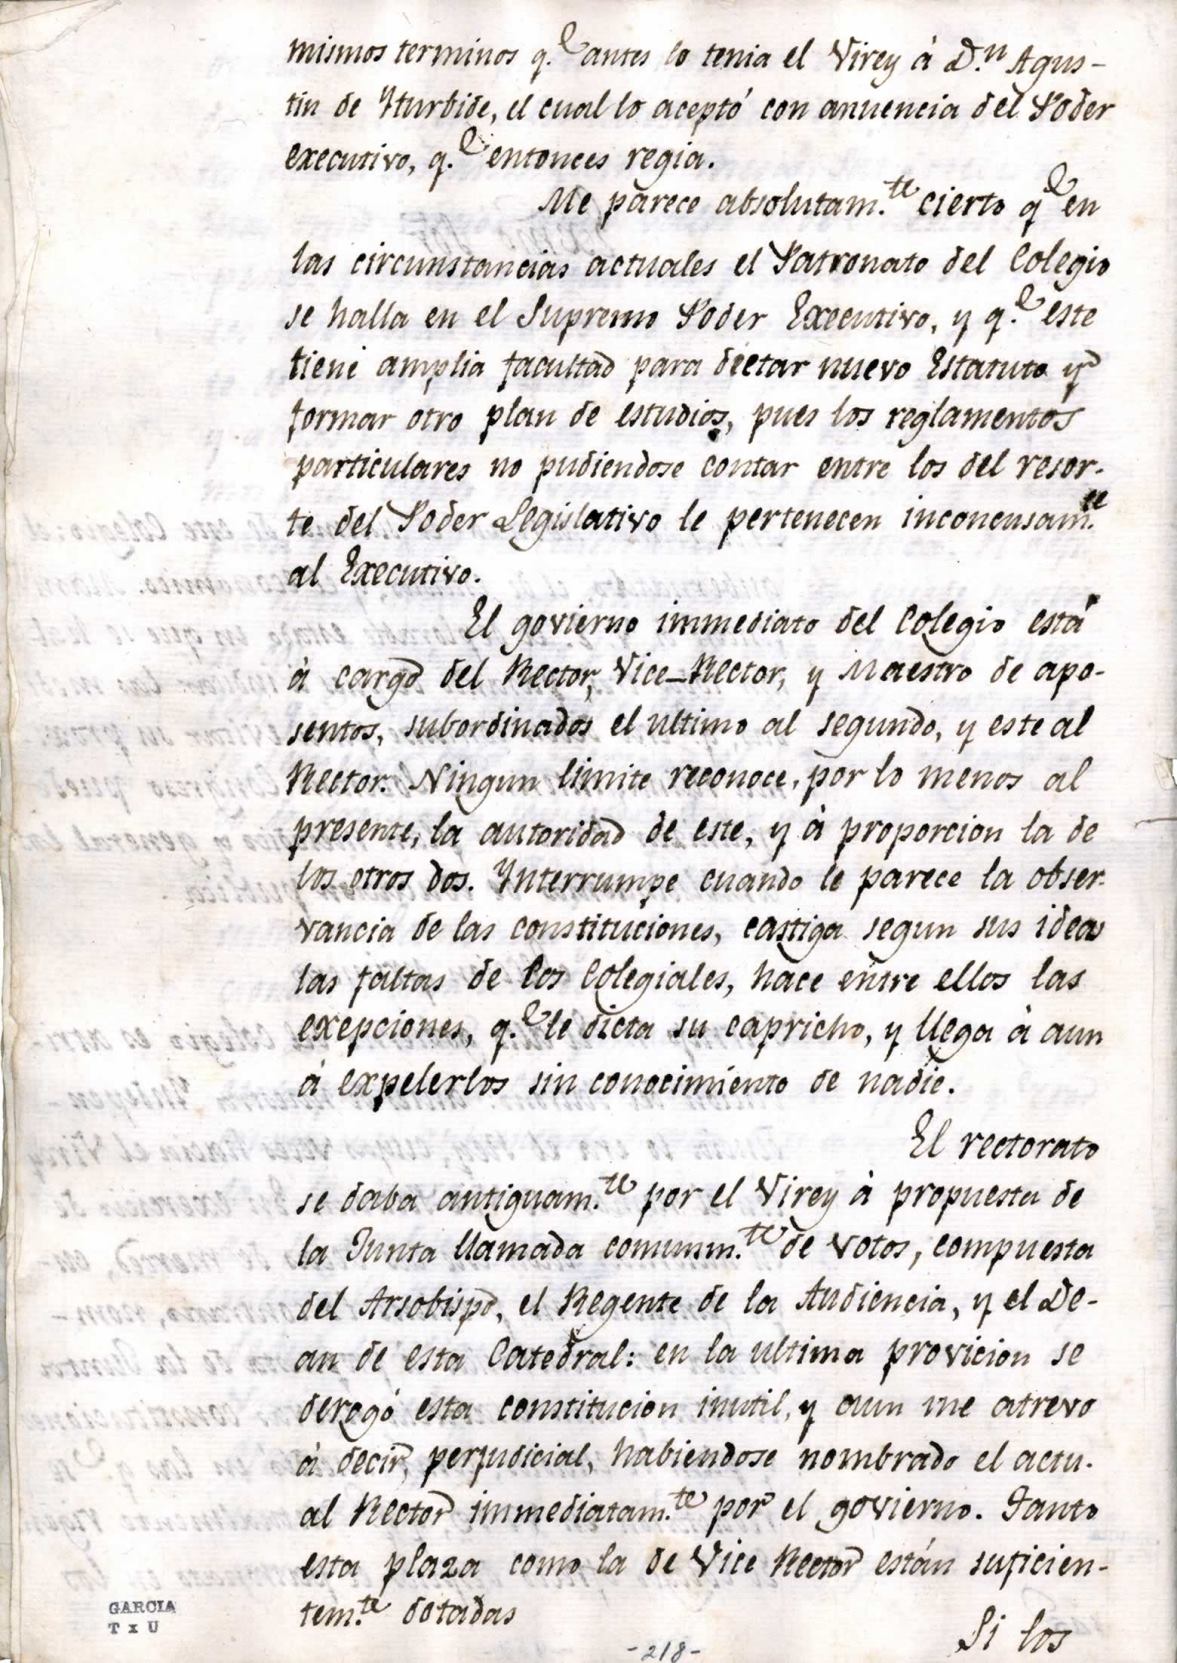 mismos terminos q.e antes lo tenia el Virey à D.n Agus-
tin de Yturbide, el cual lo aceptó con anuencia del Poder
executivo, q.e entonces regia.
Me parece absolutam.te cierto qe en
las circunstancias actuales el Patronato del Colegio
se halla en el Supremo Poder Executivo, y q.e este
tiene amplia facultad para dictar nuevo Estatuto y
formar otro plan de estudios, pues los reglamentos
particulares no pudiendose contar entre los del resor-
te del Poder Legislativo le pertenecen inconcusam.te
al Executivo.
El govierno immediato del Colegio está
à cargo del Rector, Vice-Rector, y Maestro de apo-
sentos, subordinados el ultimo al segundo, y este al
Rector. Ningun limite reconoce, por lo menos al
presente, la autoridad de este, y à proporcion la de
los otros dos. Ynterrumpe cuando le parece la obser-
vancia de las constituciones, castiga segun sus ideas
las faltas de los Colegiales, hace entre ellos las
exepciones, q.e le dicta su capricho, y llega à aun
á expelerlos sin conocimiento de nadie.
El rectorato
se daba antiguam.te por el Virey à propuesta de
la Junta llamada comunm.te de votos, compuesta
del Arsobispo, el Regente de la Audiencia, y el De-
an de esta Catedral: en la ultima provicion se
derogó esta constitucion inutil, y aun me atrevo
á decir, perjudicial, habiendose nombrado el actu-
al Rector immediatam.te por el govierno. Tanto
esta plaza como la de Vice Rector están suficien-
tem.te dotadas
Si los
GARCIA
T x U
-218-